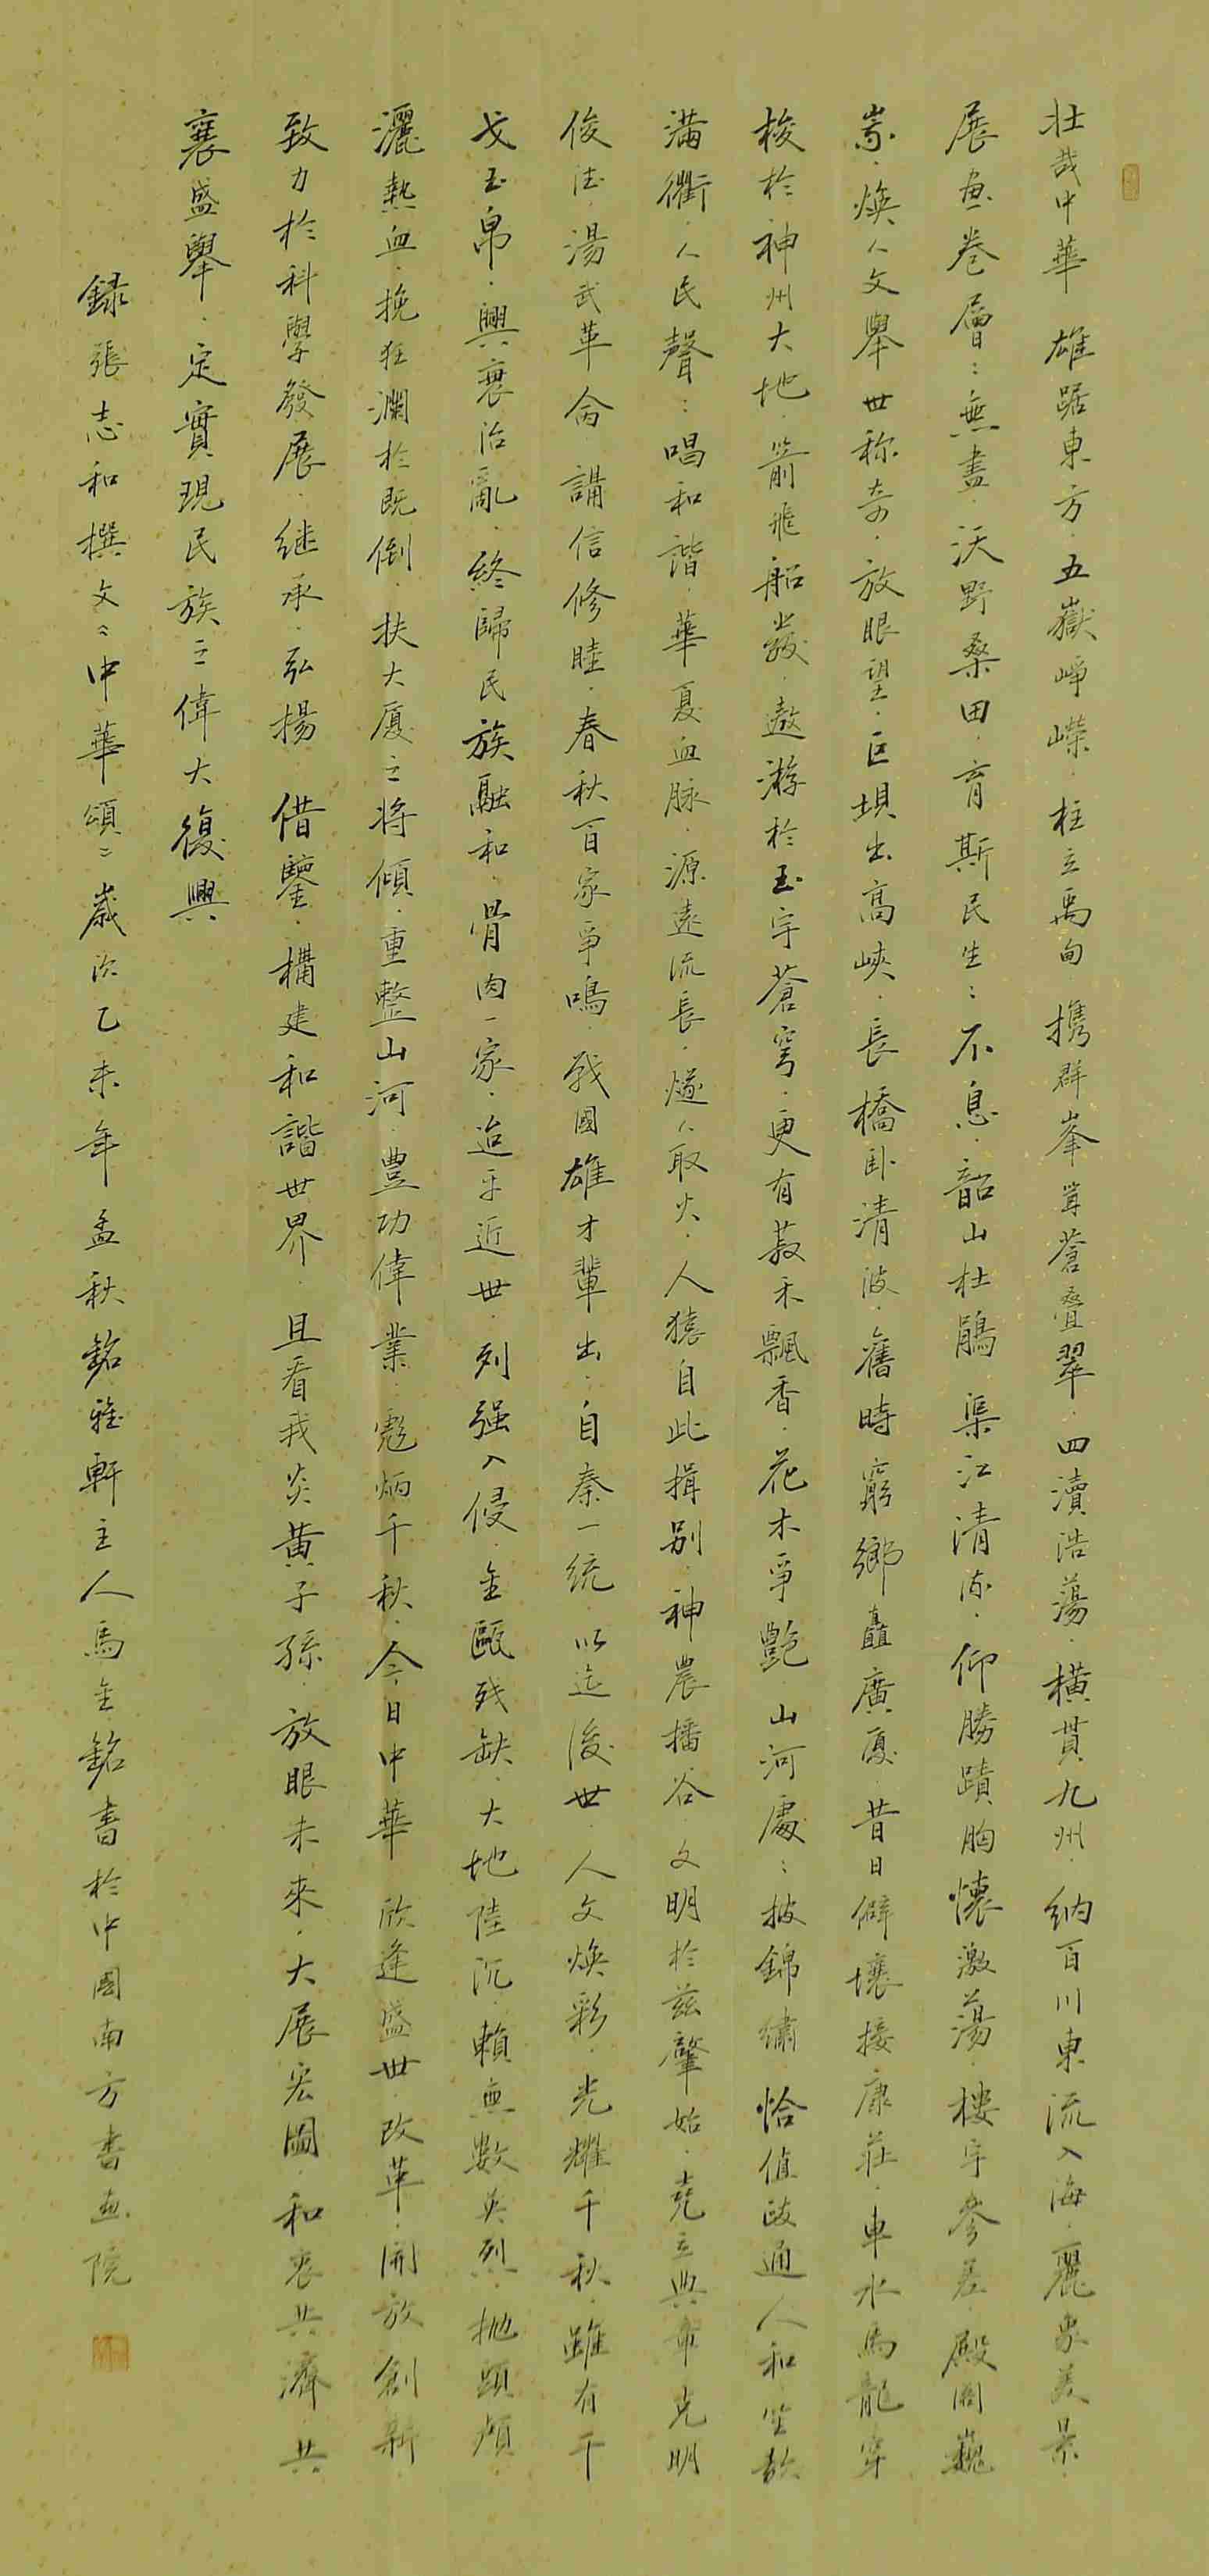 壮哉中華雄踞東方·五嶽崢嶸·柱立禹甸·携群峯聳蒼疊翠·四瀆浩蕩·橫貫九州·納百川東流入海·麗象美景·
展畫卷層:無盡·沃野桑田·育斯民生:不息·韶山杜鵑渠江清流·仰勝蹟胸懷激蕩·樓宇參差·殿閣巍
峩·焕人文舉世称奇·放眼望·巨垻出高峽·長橋卧清波·舊時窮鄉矗廣厦·昔日僻壤接康莊·車水馬龍穿
梭於神州大地·箭飛船發·遨游於玉宇蒼穹·更有菽禾飄香·花木爭艷·山河處:披錦繡恰值政通人和笙歌
滿衢·人民聲:唱和諧·華夏血脉·源遠流長·燧人取火·人猿自此揖别·神農播谷·文明於兹肇始·堯立典章克明
俊德·湯武革命講信修睦·春秋百家爭鳴·戰國雄才輩出·自秦一統·以迄後世·人文焕彩·光耀千秋·雖有干
戈玉帛·興衰治亂·終歸民族融和·骨肉一家·迨乎近世·列强入侵·金甌残缺·大地陸沉·賴無數英烈·抛頭顱·
灑熱血·挽狂瀾於既倒·扶大厦之將傾·重整山河·豐功偉業·彪炳千秋·今日中華欣逢盛世·改革·開放創新·
致力於科學發展·继承·弘揚借鑒·構建和諧世界·且看我炎黄子孫·放眼未來·大展宏圖·和衷共濟·共
襄盛舉·定實現民族之偉大復興
録張志和撰文《中華頌》歲次乙未年孟秋銘雅軒主人馬金銘書於中國南方書畫院